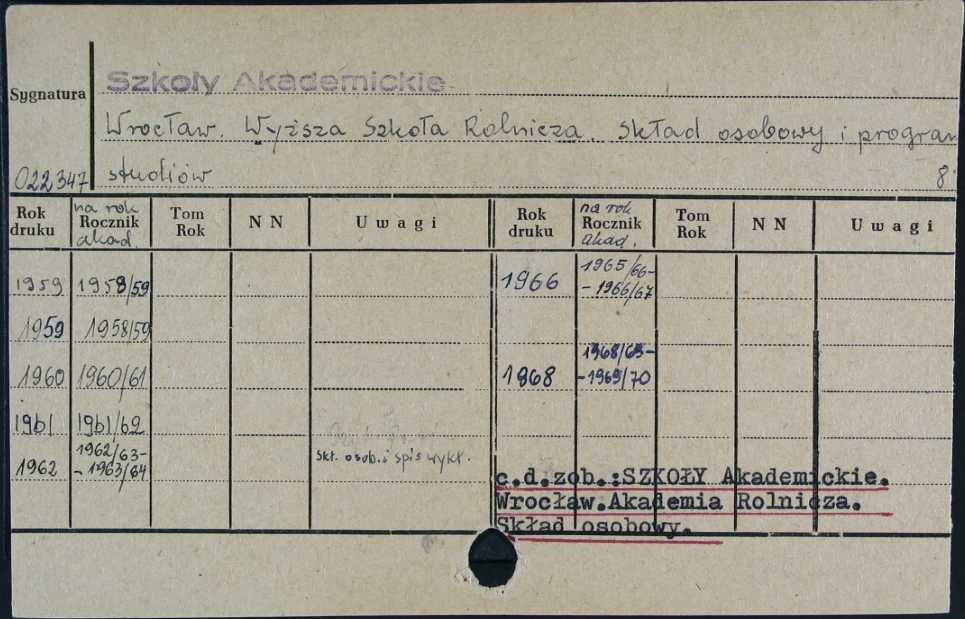 Szkoły Akademickie
Sygnatura
Wrocław. Wyższa Szkoła Rolnicza. Skład osobowy i program
022347 studiów 8°
Rok druku na rok Rocznik akad. Tom Rok N N Uwagi Rok druku na rok Rocznik akad. Tom Rok N N Uwagi
1959 1958/59 1966 1965/66-
- 1966/67
1959 1958/59
1960 1960/61 1968 1968/69-
- 1969/70
1961 1961/62
1962 1962/63-
- 1963/64 Skł. osob. i spis wykł.
c.d.zob.:SZKOŁY Akademickie.
Wrocław.Akademia Rolnicza.
Skład osobowy.